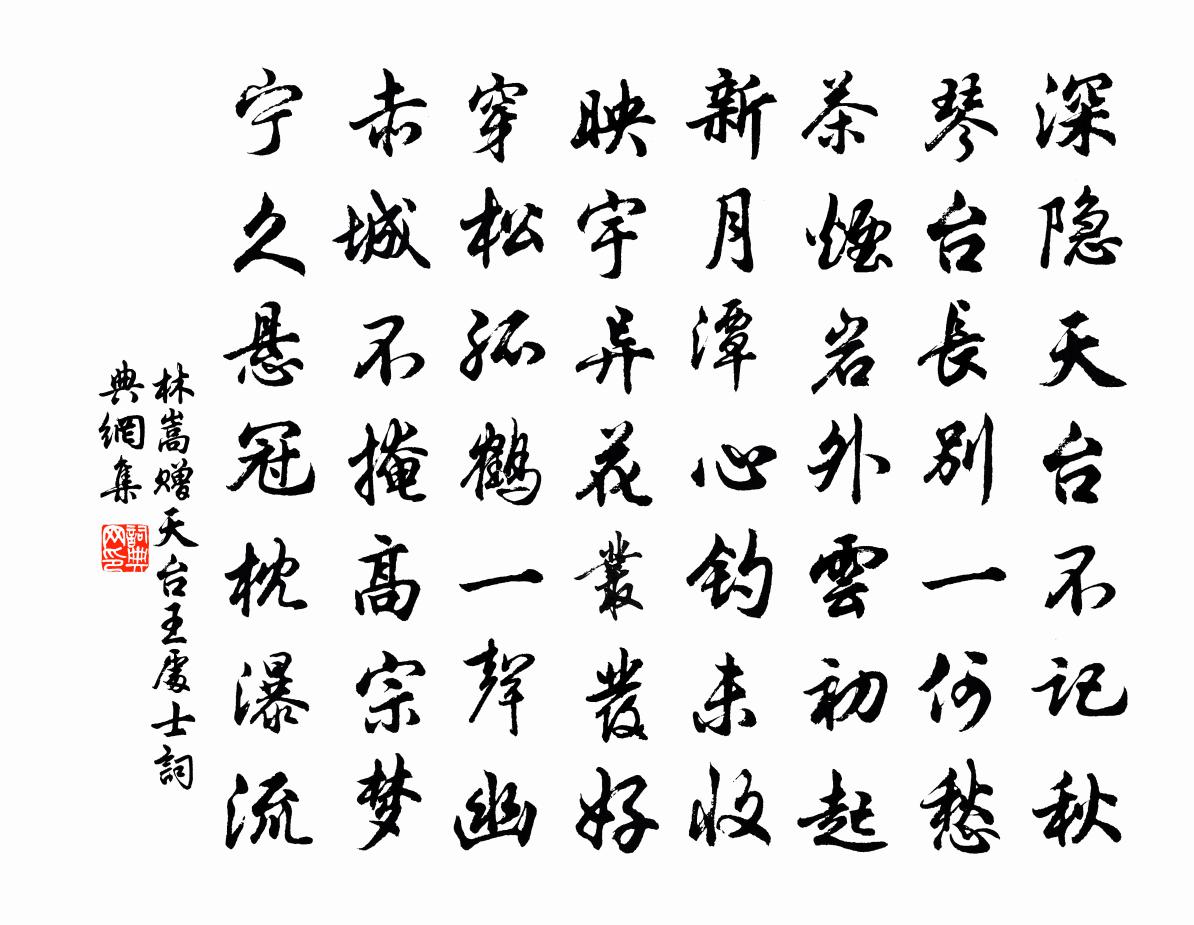 深隐天台不记秋
琴台長别一何愁
茶煙岩外雲初起
新月潭心钓未收
映宇异花叢發好
穿松孤鶴一聲幽
赤城不掩高宗梦
宁久悬冠枕瀑流
林嵩赠天台王處士詞
典網集
詞典
网印